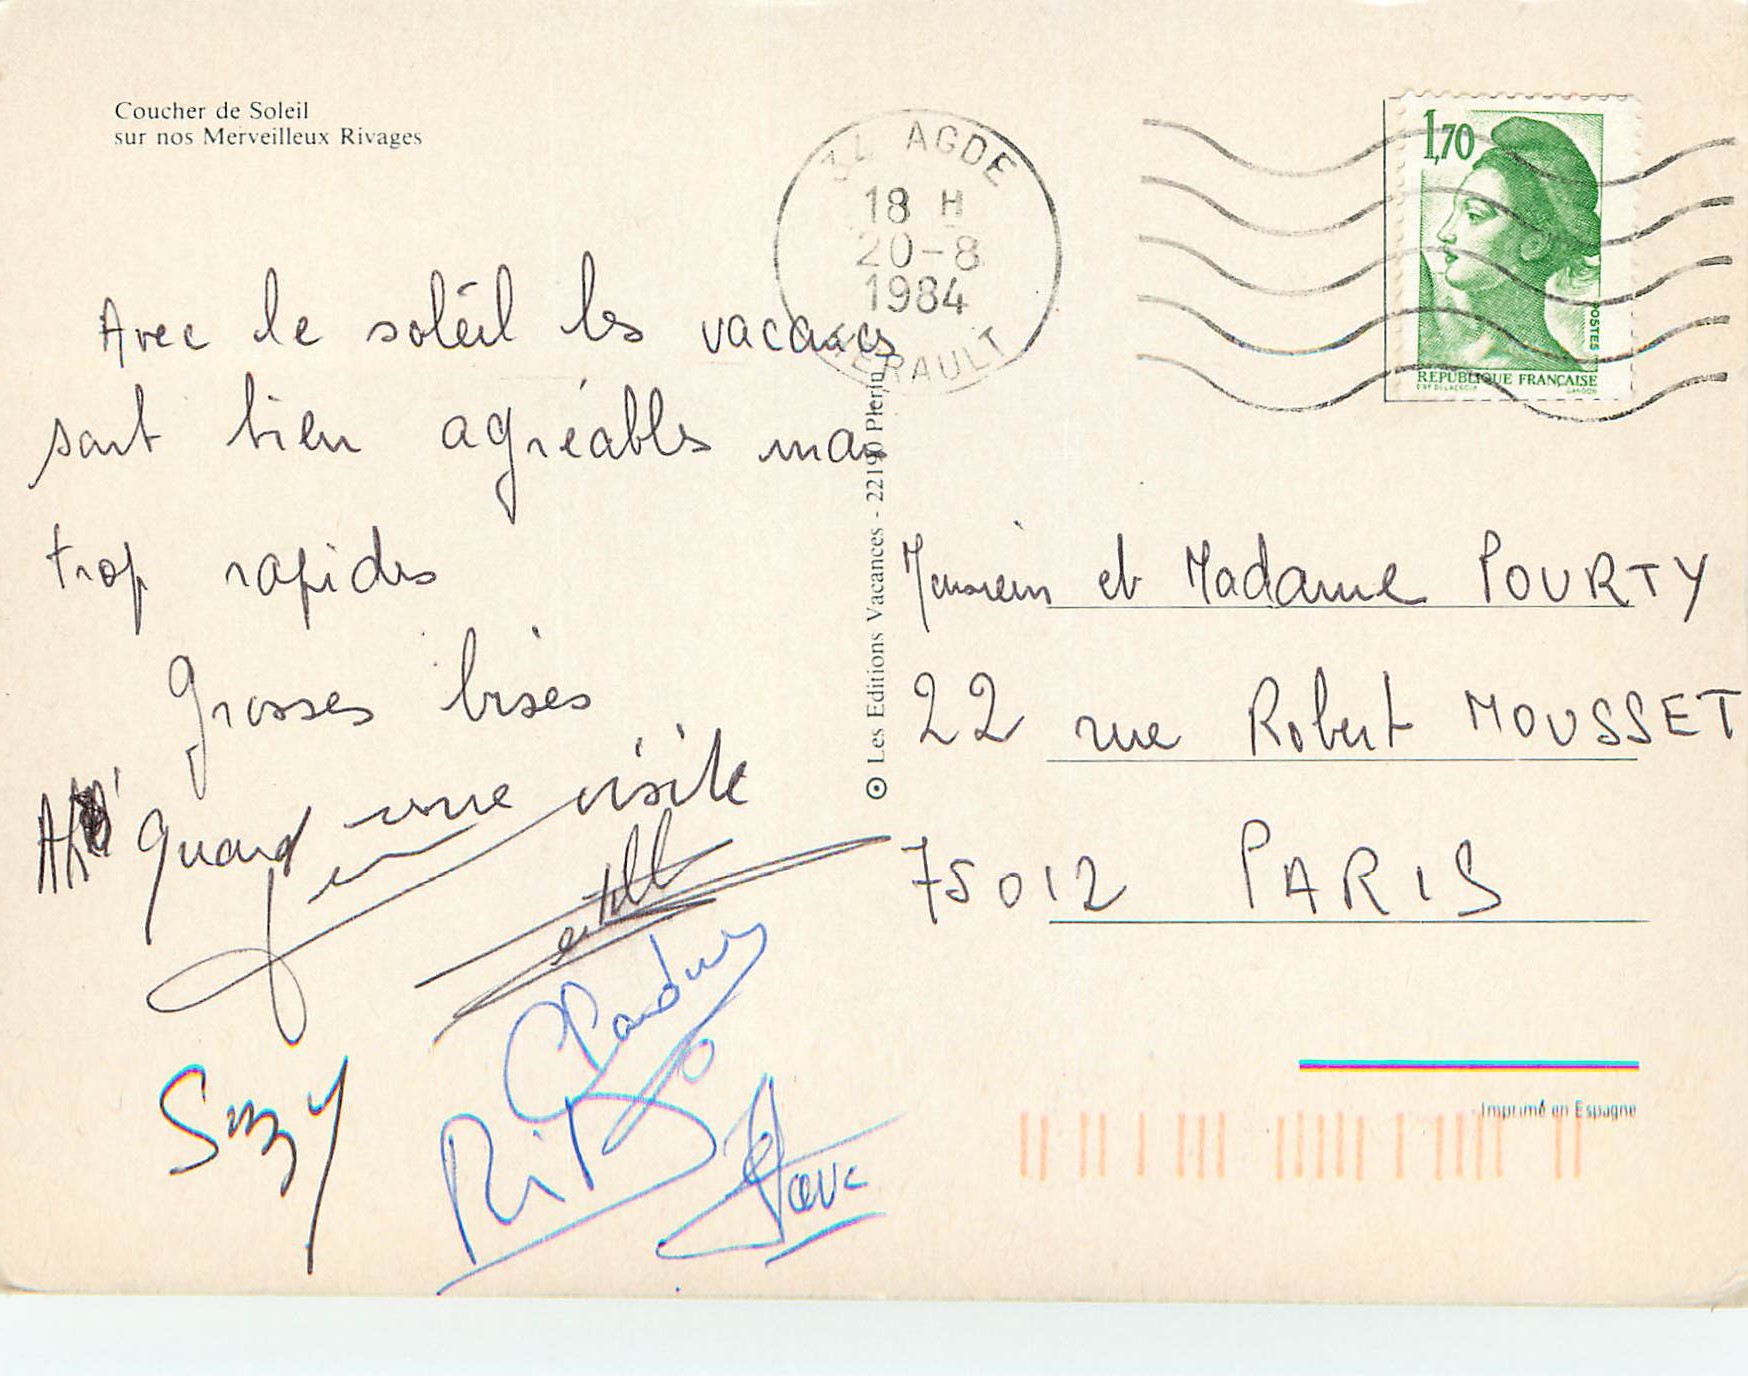 Coucher de Soleil
sur nos Merveilleux Rivages
34 AGDE
18 H
20-8
1984
HERAULT
1,70
POSTES
REPUBLIQUE FRANÇAISE
Avec le soleil les vacances
sont bien agréables mais
trop rapides
Grosses bises
Ah! Quand une visite
Suzy
Claudine
Rita
© Les Editions Vacances - 22190 Plerin
Monsieur et Madame POURTY
22 rue Robert MOUSSET
75012 PARIS
Imprimé en Espagne